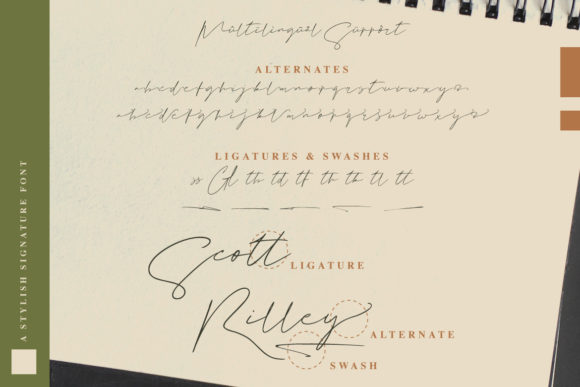 Mültilingüål Süppört
ALTERNATES
abcdefghijklmnopqrstuvwxyz
abcdefghijklmnopqrstuvwxyz
LIGATURES & SWASHES
th td tf th tk tl tt
Scott
LIGATURE
Rilley
ALTERNATE
SWASH
A STYLISH SIGNATURE FONT